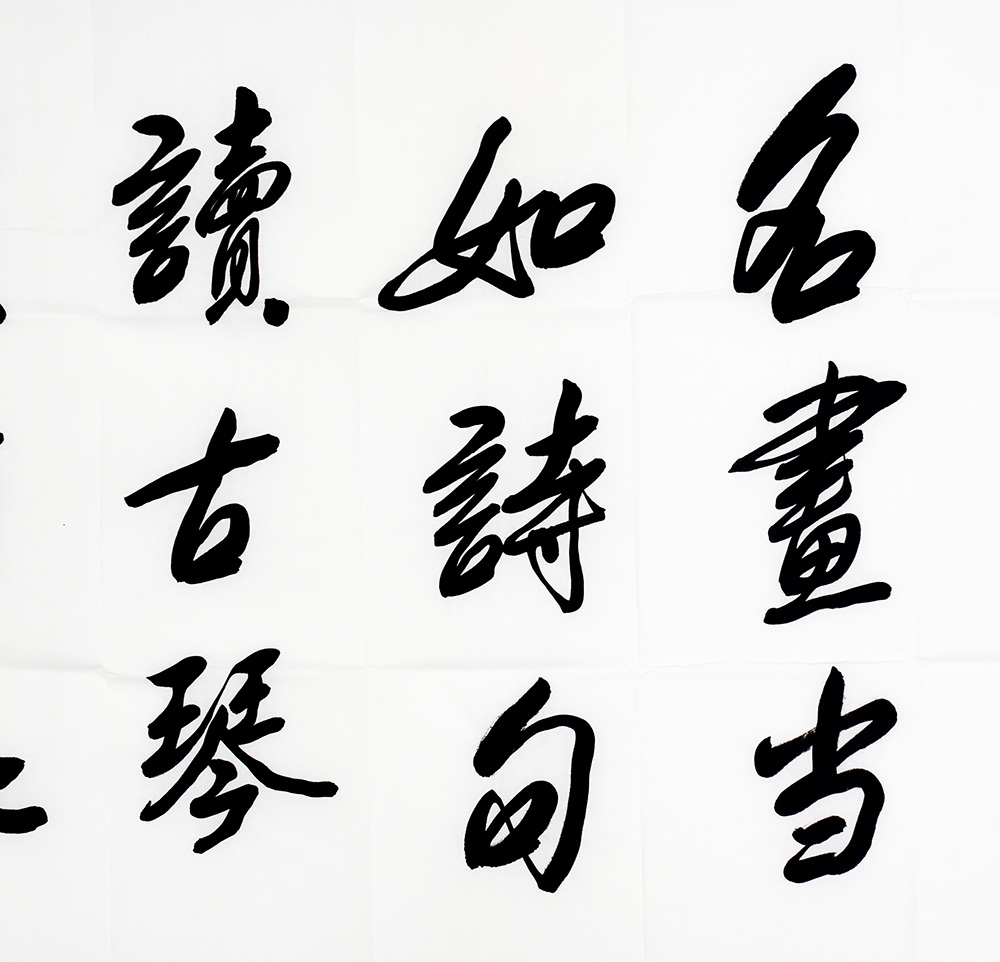 名畫当
如詩句
讀古琴